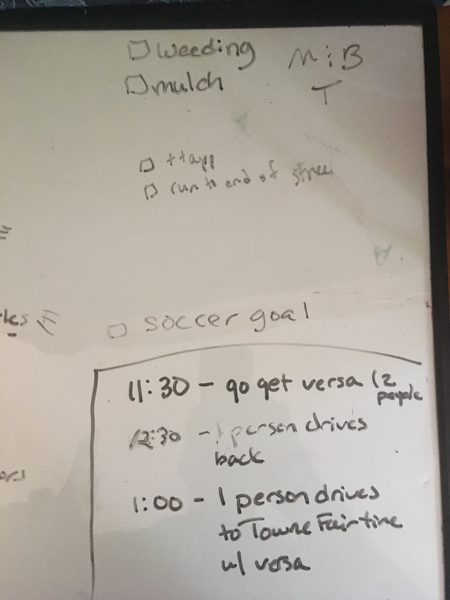 weeding
mulch
M:B
T
run to end of street
soccer goal
11:30 - go get versa (2
people
12:30 - 1 person drives
back
1:00 - 1 person drives
to Towne Fair tire
w/ versa